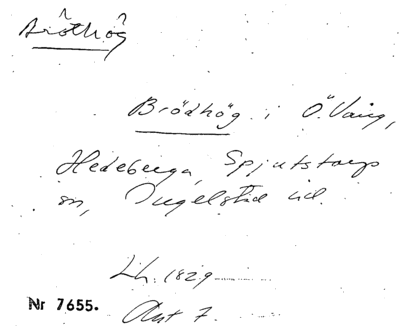 Bröthög
Brödhög i Ö. Vång,
Hedeberga, Spjutstorps
sn, Ingelstad hd.
Lh. 1829
Akt 7.
Nr 7655.